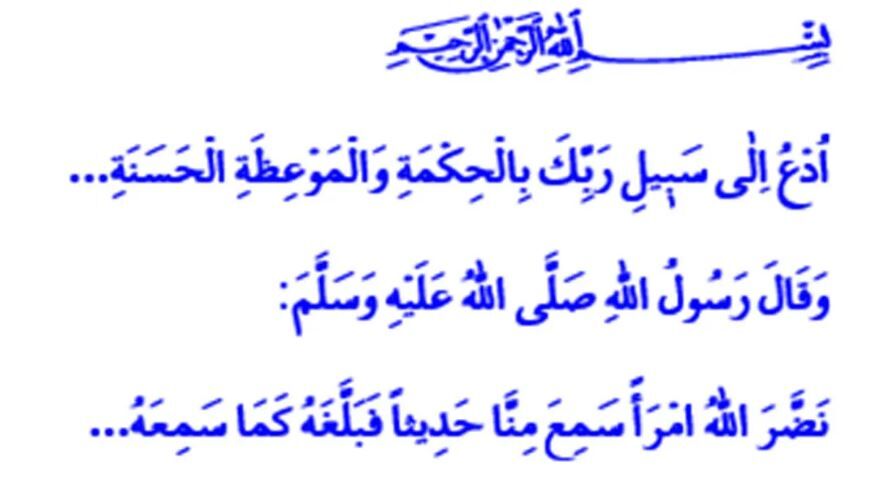 بِسْــــمِ اللهِ الرَّحْمٰنِ الرَّحِيمِ
اُدْعُ اِلٰى سَب۪يلِ رَبِّكَ بِالْحِكْمَةِ وَالْمَوْعِظَةِ الْحَسَنَةِ...
وَقَالَ رَسُولُ اللهِ صَلَّى اللهُ عَلَيْهِ وَسَلَّمَ:
نَضَّرَ اللهُ امْرَأً سَمِعَ مِنَّا حَدِيثاً فَبَلَّغَهُ كَمَا سَمِعَهُ...